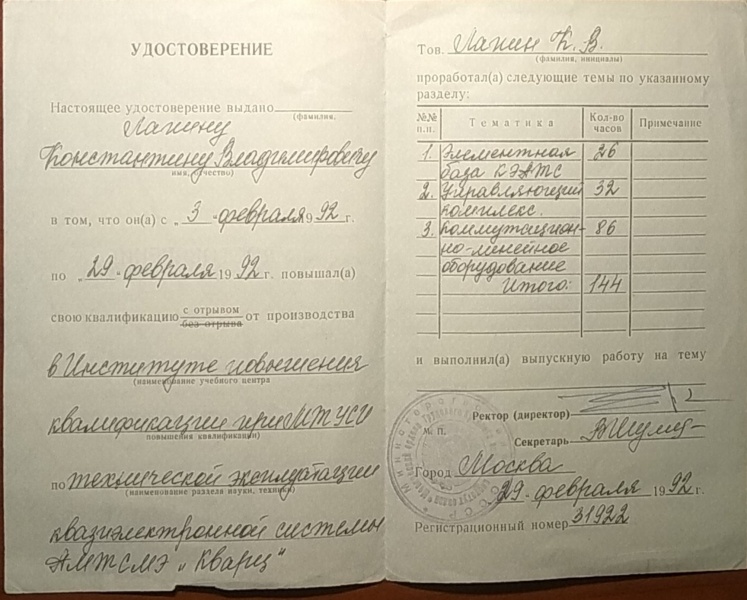 УДОСТОВЕРЕНИЕ
Настоящее удостоверение выдано
(фамилия,
Лапину
Константину Владимировичу
имя, отчество)
в том, что он(а) с „ 3 “ февраля 1992 г.
по „ 29 “ февраля 1992 г. повышал(а)
свою квалификацию с отрывом
без отрыва от производства
в Институте повышения
(наименование учебного центра
квалификации при МТУСИ
повышения квалификации)
по технической эксплуатации
(наименование раздела науки, техники)
квазиэлектронной системы
АМТСМЭ „Кварц"
Тов. Лапин К. В.
(фамилия, инициалы)
проработал(а) следующие темы по указанному
разделу:
№№ п.п. Тематика Кол-во часов Примечание
1. Элементная 26
база КЭАТС
2. Управляющий 32
комплекс.
3. Коммутацион- 86
но-линейное
оборудование
Итого: 144
и выполнил(а) выпускную работу на тему
Ректор (директор)
М. П.
Секретарь
Город Москва
„29“ февраля 1992 г.
Регистрационный номер 31922